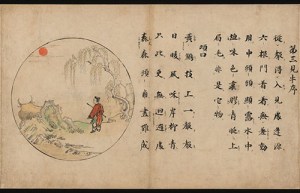 第三見牛序
從聲得入見處逢源
六根門著著無差動
用中頭頭顯露水中
鹽味色裏膠青眨上
眉毛非是他物
頌曰
黃鸝枝上一聲聲
日暖風和岸柳青
只此更無迴避處
森森頭角畫難成